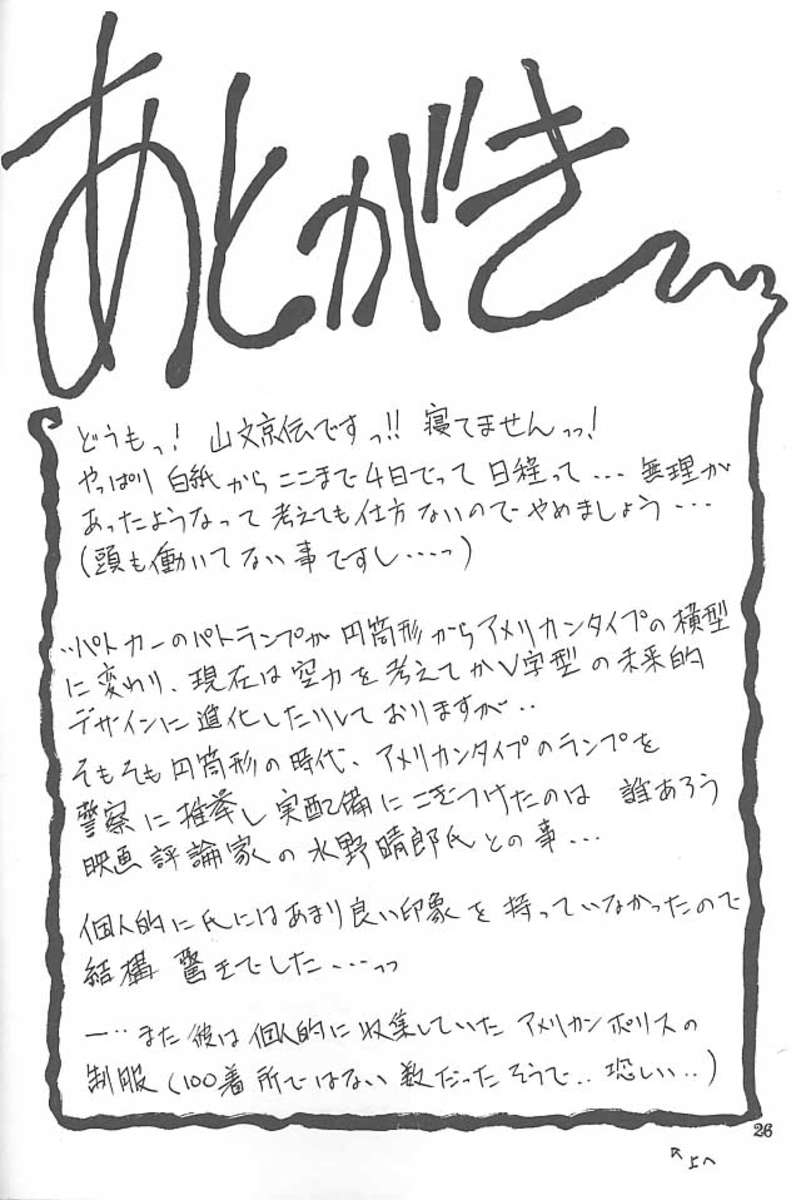 あとがき
どうもっ! 山文京伝ですっ!! 寝てませんっっ!
やっぱり 白紙からここまで4日でって 日程って… 無理が
あったようなって 考えても仕方ないので やめましょう…
(頭も働いてない事ですし…‥っ)
‥パトカーのパトランプが 円筒形からアメリカンタイプの横型
に変わり、現在は空力を考えてかV字型の未来的
デザインに進化したりしておりますが‥
そもそも円筒形の時代、アメリカンタイプのランプを
警察に推挙し実配備にこぎつけたのは 誰あろう
映画評論家の水野晴郎氏との事…
個人的に氏にはあまり良い印象を持っていなかったので
結構 驚きでした…っっ
ー‥また彼は個人的に収集していた アメリカンポリスの
制服(100着所ではない数だったそうで‥恐しい‥)
26
上へ